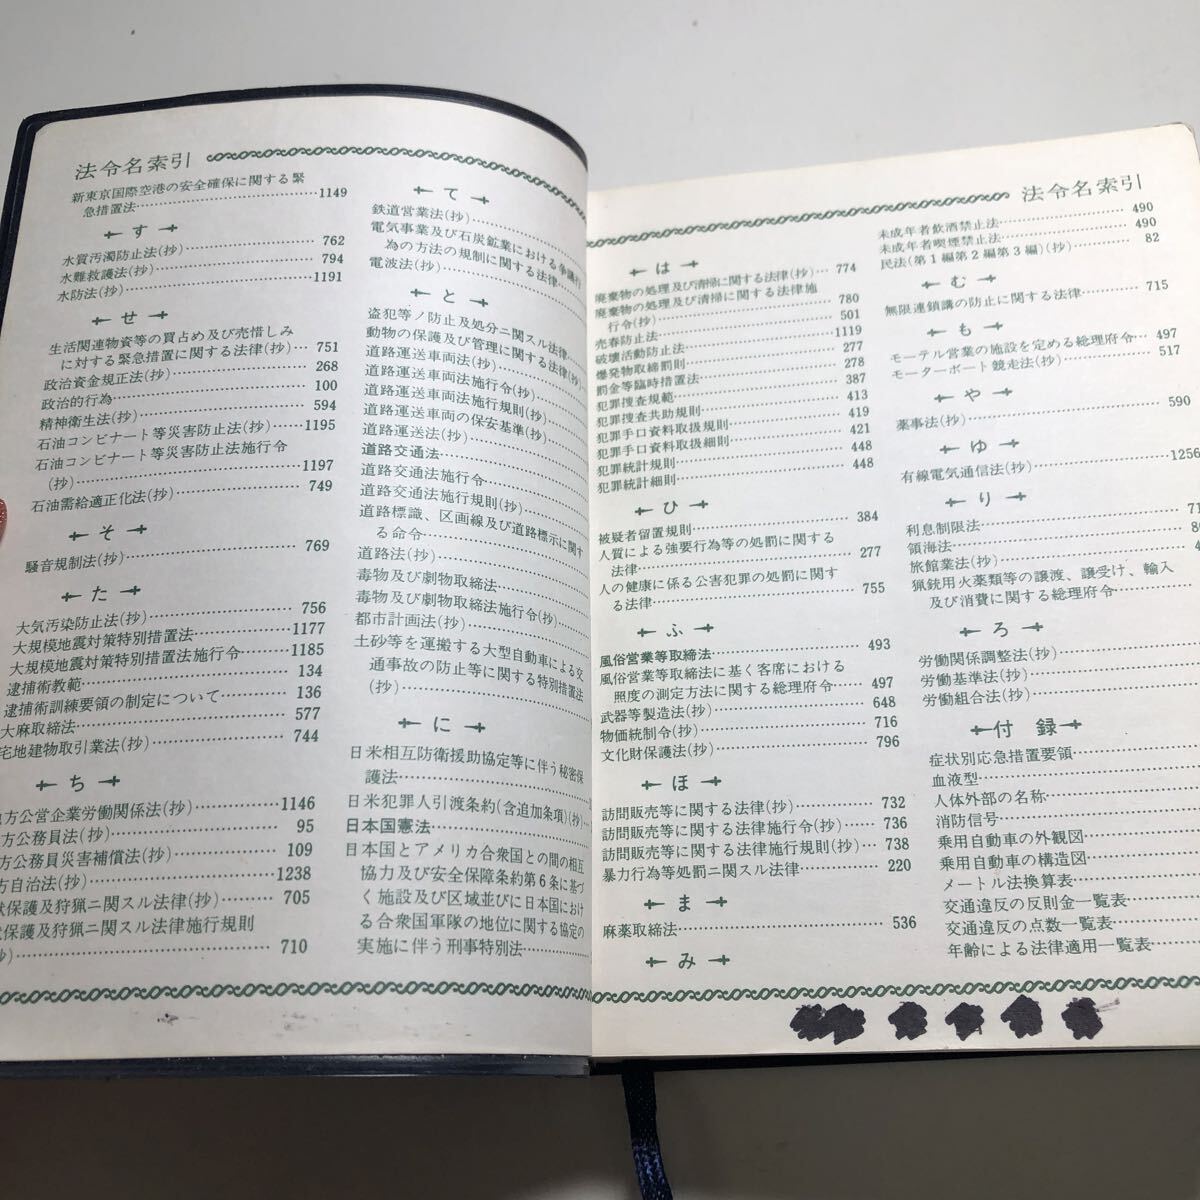 法令名索引
新東京国際空港の安全確保に関する緊
急措置法……1149
す
水質汚濁防止法(抄)……762
水難救護法(抄)……794
水防法(抄)……1191
せ
生活関連物資等の買占め及び売惜しみ
に対する緊急措置に関する法律(抄)…751
政治資金規正法(抄)……268
政治的行為……100
精神衛生法(抄)……594
石油コンビナート等災害防止法(抄)……1195
石油コンビナート等災害防止法施行令
(抄)……1197
石油需給適正化法(抄)……749
そ
騒音規制法(抄)……769
た
大気汚染防止法(抄)……756
大規模地震対策特別措置法……1177
大規模地震対策特別措置法施行令……1185
逮捕術教範……134
逮捕術訓練要領の制定について……136
大麻取締法……577
宅地建物取引業法(抄)……744
ち
地方公営企業労働関係法(抄)……1146
方公務員法(抄)……95
方公務員災害補償法(抄)……109
方自治法(抄)……1238
獣保護及狩猟ニ関スル法律(抄)……705
保護及狩猟ニ関スル法律施行規則
(抄)……710
て
鉄道営業法(抄)……
電気事業及び石炭鉱業における争議行
為の方法の規制に関する法律……
電波法(抄)……
と
盗犯等ノ防止及処分ニ関スル法律
動物の保護及び管理に関する法律(抄)
道路運送車両法(抄)……
道路運送車両法施行令(抄)……
道路運送車両法施行規則(抄)……
道路運送車両の保安基準(抄)……
道路運送法(抄)……
道路交通法……
道路交通法施行令……
道路交通法施行規則(抄)……
道路標識、区画線及び道路標示に関す
る命令……
道路法(抄)……
毒物及び劇物取締法……
毒物及び劇物取締法施行令(抄)……
都市計画法(抄)……
土砂等を運搬する大型自動車による交
通事故の防止等に関する特別措置法
(抄)……
に
日米相互防衛援助協定等に伴う秘密保
護法……
日米犯罪人引渡条約(含追加条項)(抄)…
日本国憲法……
日本国とアメリカ合衆国との間の相互
協力及び安全保障条約第6条に基づ
く施設及び区域並びに日本国におけ
る合衆国軍隊の地位に関する協定の
実施に伴う刑事特別法……
法令名索引
は
廃棄物の処理及び清掃に関する法律(抄)…774
廃棄物の処理及び清掃に関する法律施
行令(抄)……780
売春防止法……501
破壊活動防止法……1119
爆発物取締罰則……277
罰金等臨時措置法……278
犯罪捜査規範……387
犯罪捜査共助規則……413
犯罪手口資料取扱規則……419
犯罪手口資料取扱細則……421
犯罪統計規則……448
犯罪統計細則……448
ひ
被疑者留置規則……384
人質による強要行為等の処罰に関する
法律……277
人の健康に係る公害犯罪の処罰に関す
る法律……755
ふ
風俗営業等取締法……493
風俗営業等取締法に基く客席における
照度の測定方法に関する総理府令……497
武器等製造法(抄)……648
物価統制令(抄)……716
文化財保護法(抄)……796
ほ
訪問販売等に関する法律(抄)……732
訪問販売等に関する法律施行令(抄)……736
訪問販売等に関する法律施行規則(抄)…738
暴力行為等処罰ニ関スル法律……220
ま
麻薬取締法……536
み
未成年者飲酒禁止法……490
未成年者喫煙禁止法……490
民法(第1編第2編第3編)(抄)……82
む
無限連鎖講の防止に関する法律……715
も
モーテル営業の施設を定める総理府令…497
モーターボート競走法(抄)……517
や
薬事法(抄)……590
ゆ
有線電気通信法(抄)……1256
り
利息制限法……71
領海法……
旅館業法(抄)……
猟銃用火薬類等の譲渡、譲受け、輸入
及び消費に関する総理府令……
ろ
労働関係調整法(抄)……
労働基準法(抄)……
労働組合法(抄)……
付録
症状別応急措置要領……
血液型……
人体外部の名称……
消防信号……
乗用自動車の外観図……
乗用自動車の構造図……
メートル法換算表……
交通違反の反則金一覧表……
交通違反の点数一覧表……
年齢による法律適用一覧表……